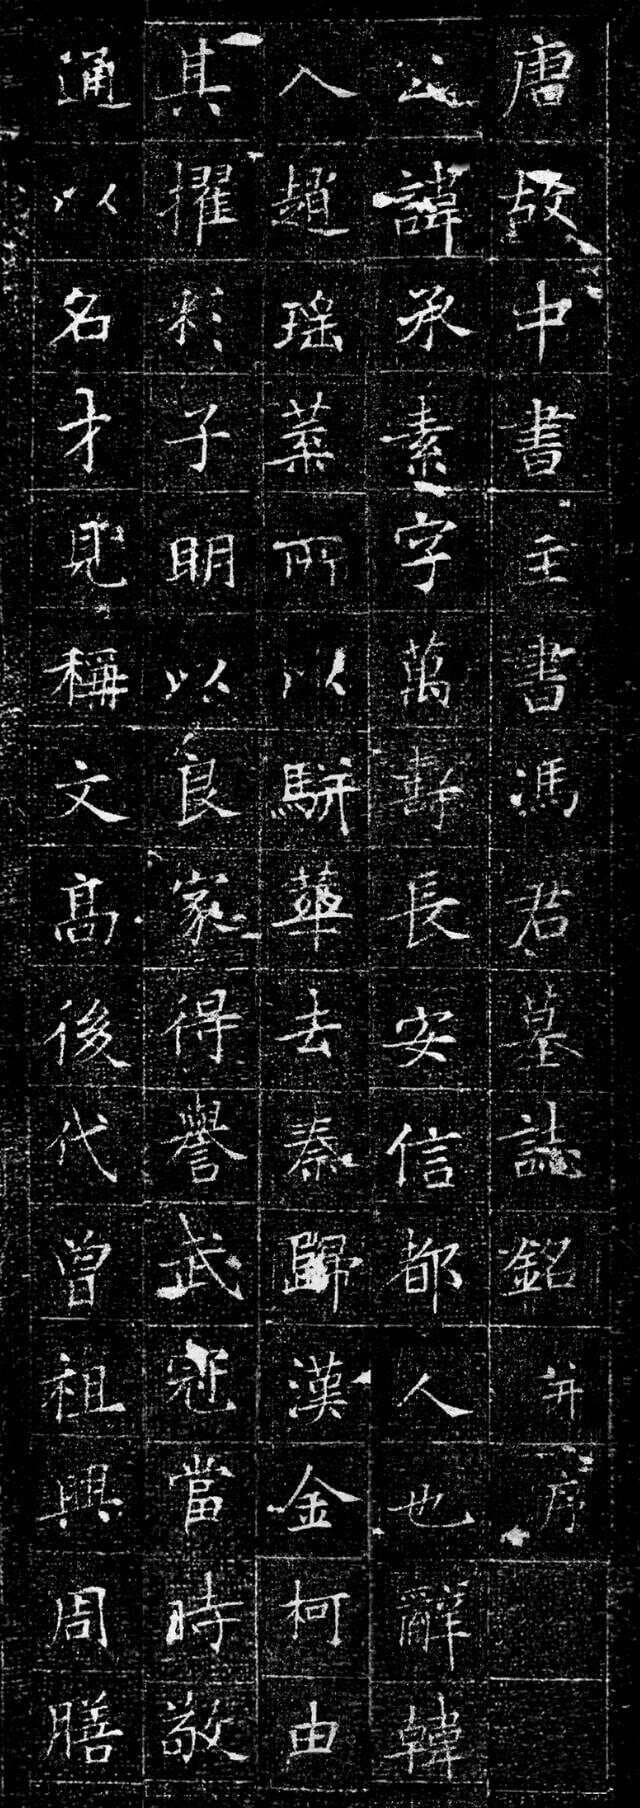 唐故中書主書馮君墓誌銘并序
公諱承素字萬壽長安信都人也辭韓
入趙瑤葉所以駢華去秦歸漢金柯由
其擢彩子明以良家得譽武冠當時敬
通以名才見稱文高後代曾祖興周膳